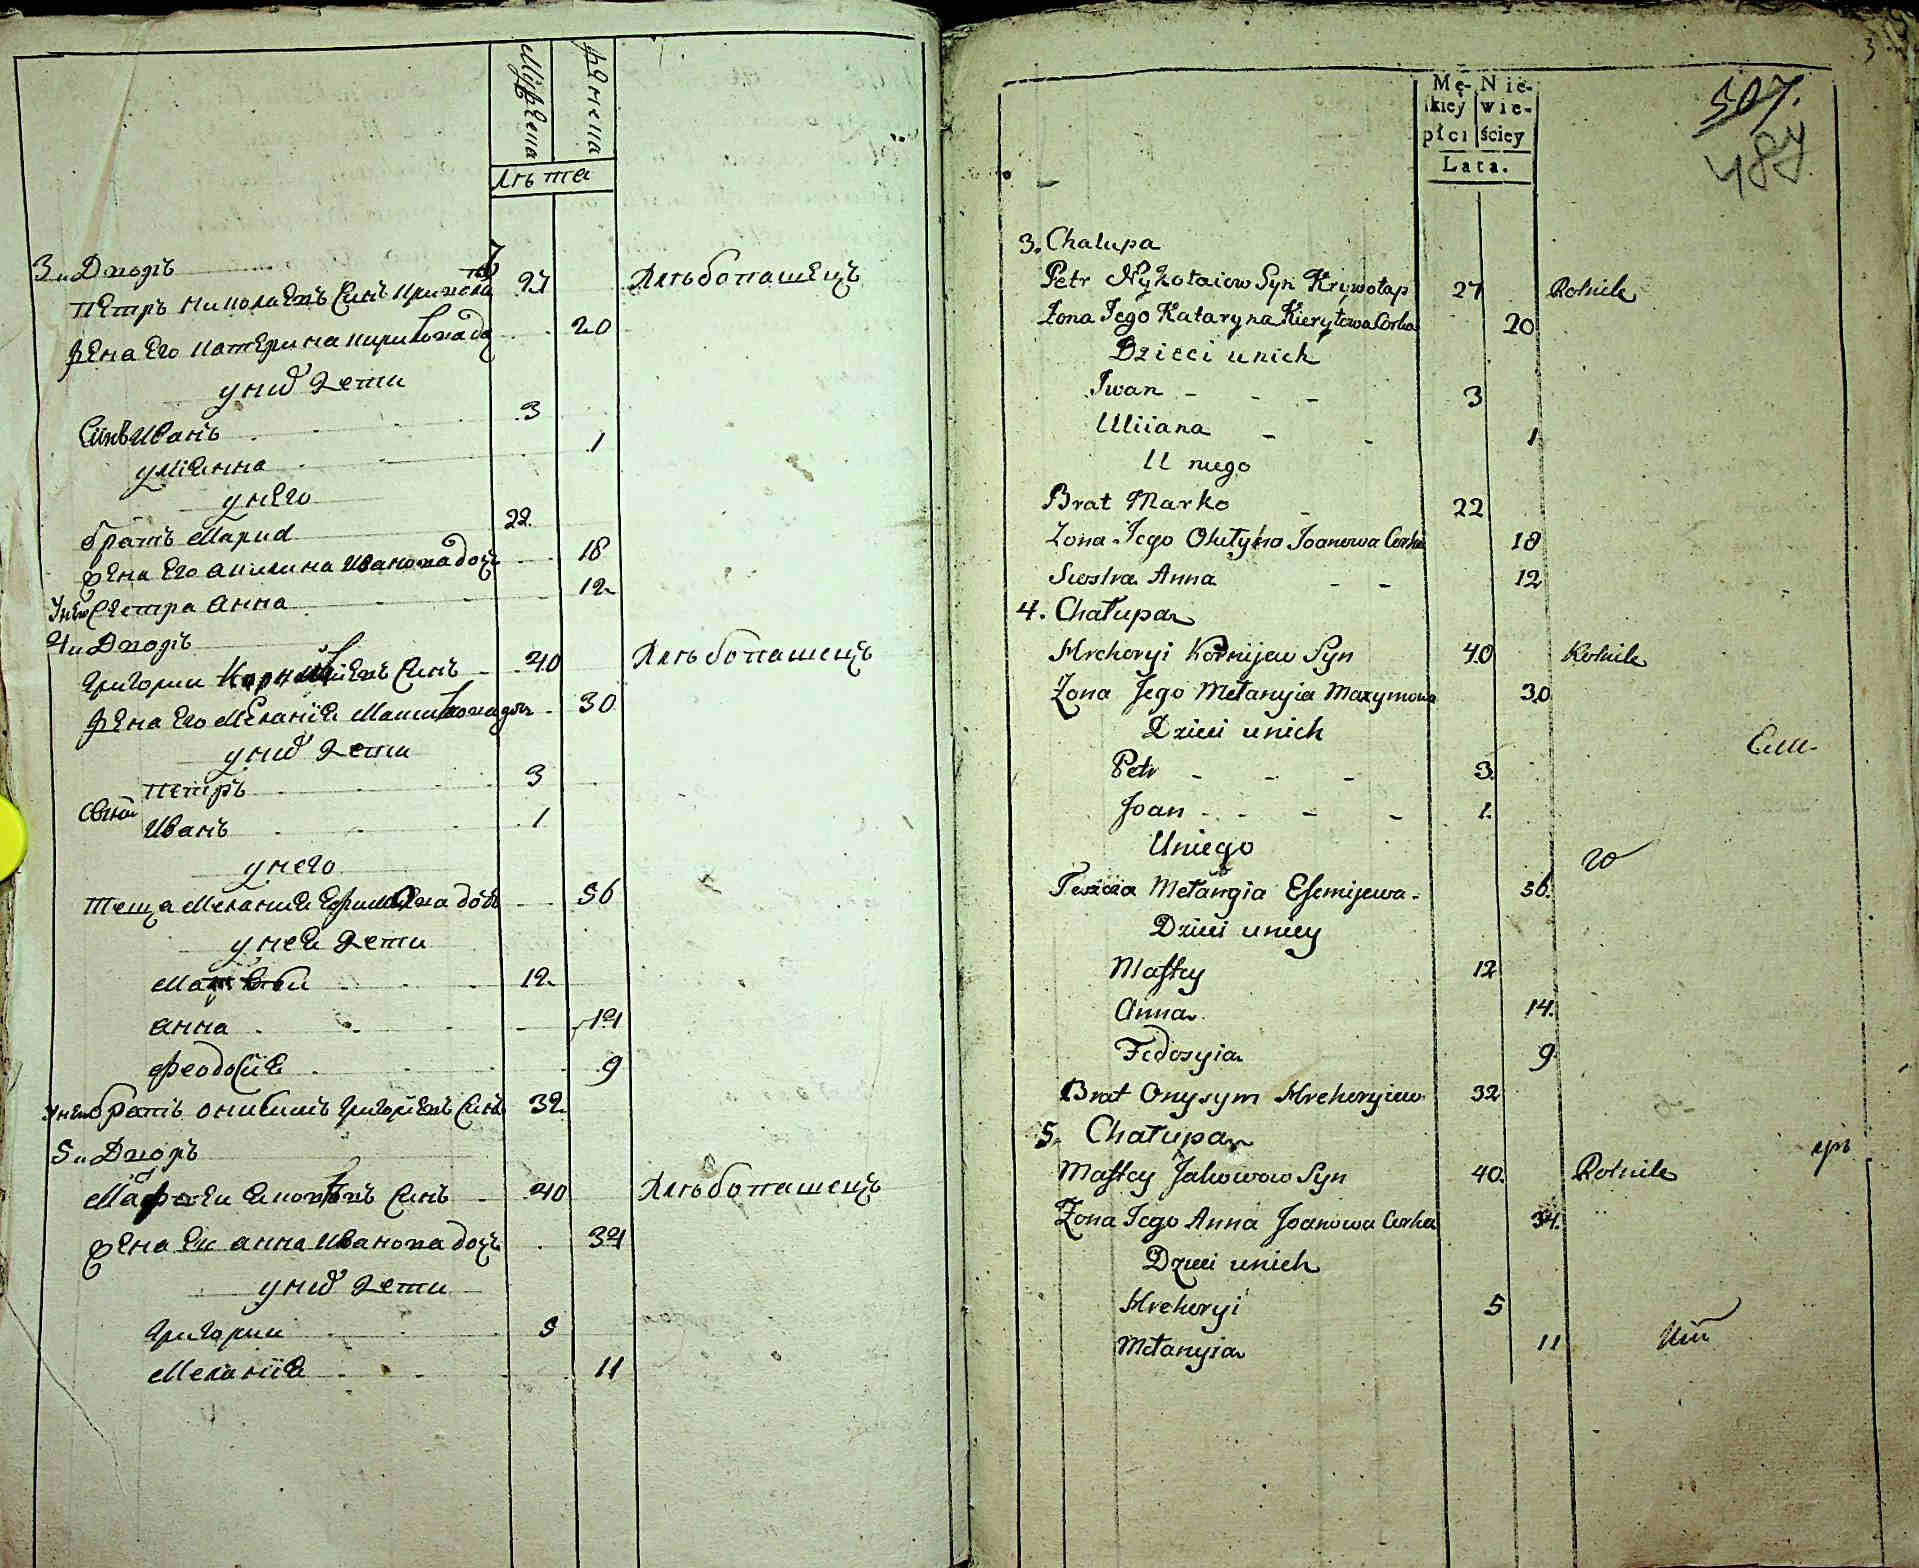 Мужеска
Женска
Лѣта
3й Дворъ
Петръ Николаевъ Синъ Кривола 27 Хлѣбопашецъ
пъ
Жена Его Катерина Кирилова до 20
у нихъ дети
Синъ Иванъ 3
Улианна 1
у него
братъ Марко 22
Жена Его Акилина Иванова доч 18
у него Сестра Анна 12
4й Дворъ
Григории Корниевъ Синъ 40 Хлѣбопашецъ
Жена Его Меланиа Максимова доч 30
у нихъ дети
Петръ 3
Иванъ 1
у него
Теща Мелания Ефимиева доч 56
у неи дети
Матвѣи 12
Анна 14
Феодосиа 9
у него братъ Онисимъ Григориевъ Синъ 32
5й Дворъ
Мафѣи Яковлевъ Синъ 40 Хлѣбопашецъ
Жена Ег Анна Иванова доч 34
у нихъ дети
Григории 5
Меланиа 11
3
Mę- Nie-
skiey wie-
płci ściey
Lata.
507.
487
3. Chalupa
Petr Nykołaiow Syn Krywołap 27 Rolnik
Zona Jego Kataryna Kieryłowa Corka 20
Dzieci unich
Iwan - - - 3
Uliiana - - 1
U niego
Brat Marko - 22
Zona Jego Okułyna Joanowa Corka 18
Siestra Anna - - 12
4. Chałupa
Hrehoryi Kornijew Syn 40 Rolnik
Zona Jego Mełanyia Maxymowa 30
Dzieci unich
Petr - - - 3
Joan - - - - 1.
Uniego
го
Teszcza Mełangia Efemijewa - 56.
Dzieci uniey
Matfey 12
Anna 14.
Fedosyia 9
Brat Onysym Hrehoryiew 32
5. Chałupa
Matfey Jakowow Syn 40. Rolnik
Zona Jego Anna Joanowa Corka 34.
Dzieci unich
Hrehoryi 5
Mełanyia 11